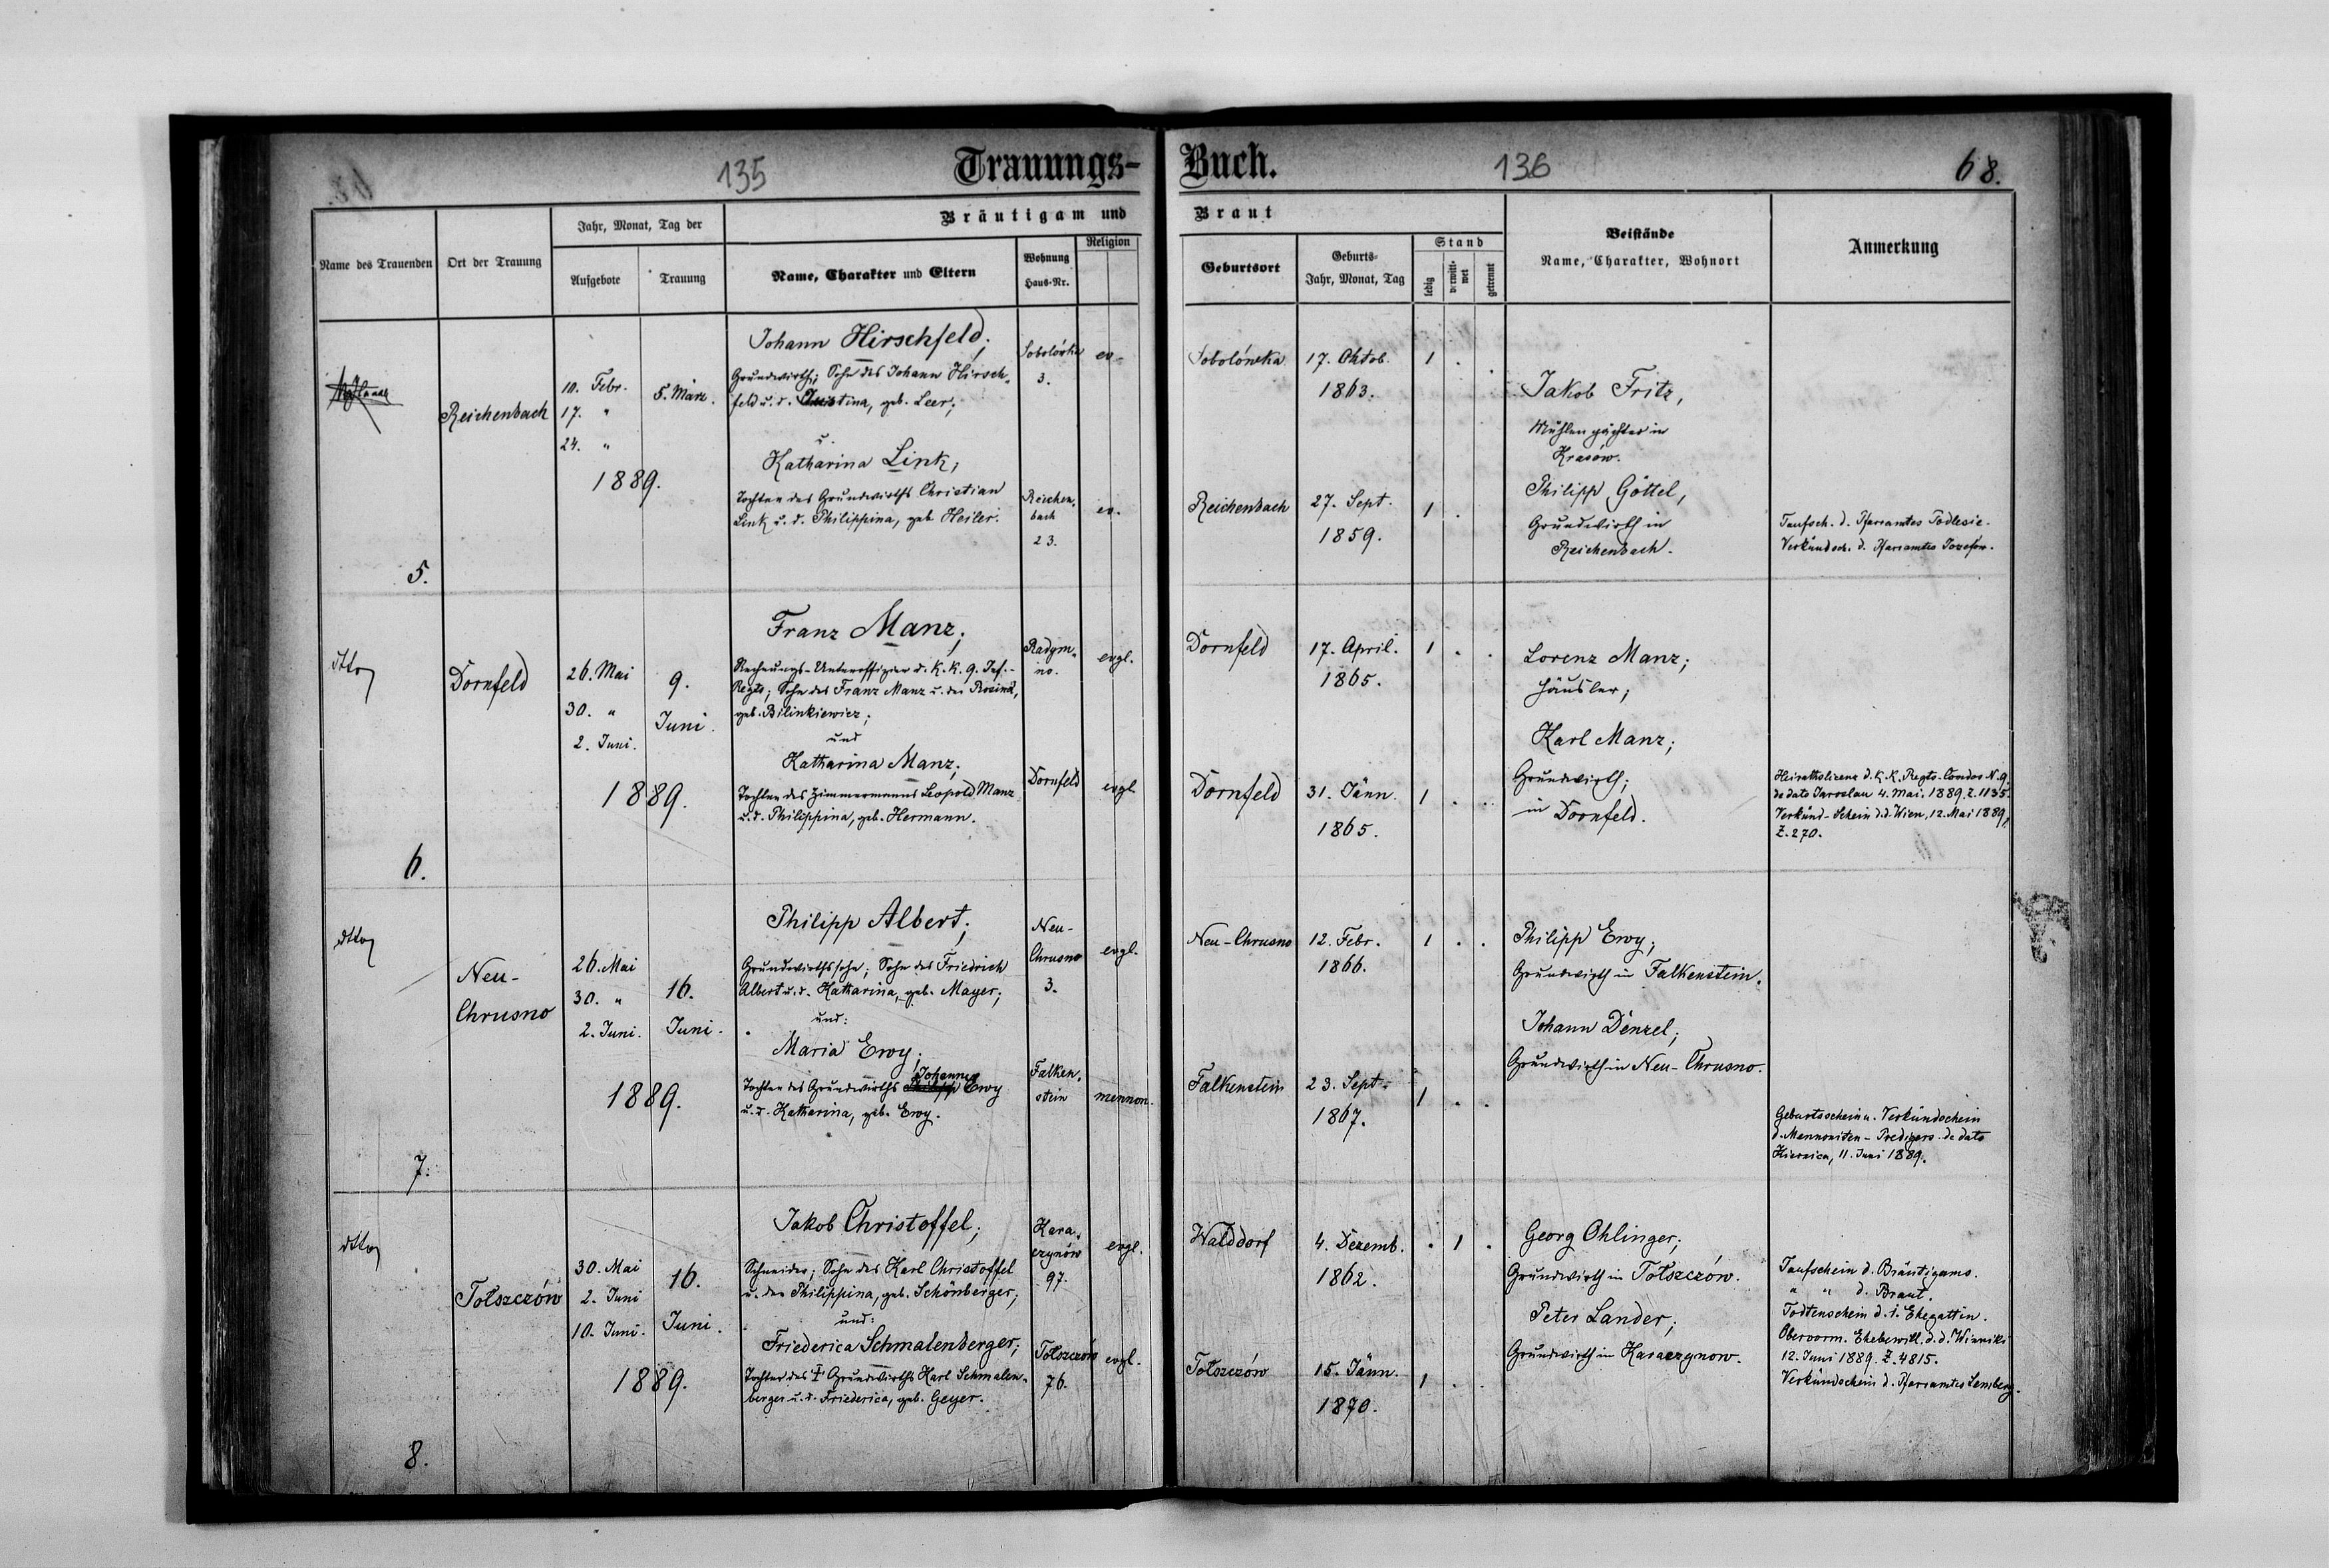 135
Trauungs-
Buch.
136
68.
Name des Trauenden
Ort der Trauung
Jahr, Monat, Tag der
Aufgebote
Trauung
Bräutigam und
Name, Charakter und Eltern
Wohnung
Haus-Nr.
Religion
Braut
Geburtsort
Geburts-
Jahr, Monat, Tag
Stand
ledig
verwitt-
wet
getrennt
Beistände
Name, Charakter, Wohnort
Anmerkung
5.
Reichenbach
10. Febr.
17. "
24. "
5. März.
1889.
Johann Hirschfeld;
Grundwirth; Sohn des Johann Hirsch-
feld u. d. Justina, geb. Leer;
u.
Katharina Link;
Tochter des Grundwirths Christian
Link u. d. Philippina, geb. Heiler.
Sobolówka
3.
ev.
Reichen-
bach
23.
ev.
Sobolówka
17. Oktob.
1863.
1 . .
Reichenbach
27. Sept.
1859.
1 .
Jakob Fritz,
Mühlenpächter in
Krasów.
Philipp Göttel,
Grundwirth in
Reichenbach.
Taufsch. d. Pfarramtes Podlesie.
Verkündsch. d. Pfarramtes Josefow.
6.
dtto
Dornfeld
26. Mai
30. "
2. Juni.
9.
Juni.
1889.
Franz Manz;
Rechnungs-Unteroffizier d. k. k. 9. Inf.-
Regts; Sohn des Franz Manz u. der Rosina,
geb. Bilinkiewicz;
und
Katharina Manz;
Tochter des Zimmermanns Leopold Manz
u. d. Philippina, geb. Hermann.
Radym-
no.
evgl.
Dornfeld
evgl.
Dornfeld
17. April.
1865.
1 . .
Dornfeld
31. Jänn.
1865.
1 . .
Lorenz Manz;
Häusler;
Karl Manz;
Grundwirth;
in Dornfeld.
Heirathslicenz d. k. k. Regts-Comdos N. 9.
de dato Jaroslau 4. Mai. 1889. Z. 1135.
Verkünd-Schein d. d. Wien, 12. Mai 1889,
Z. 270.
7.
dtto
Neu-
Chrusno
26. Mai
30. "
2. Juni.
16.
Juni.
1889.
Philipp Albert;
Grundwirthssohn; Sohn des Friedrich
Albert u. d. Katharina, geb. Mayer;
und:
Maria Ewy;
Johannes
Tochter des Grundwirths Philipp Ewy
u. d. Katharina, geb. Ewy.
Neu-
Chrusno
3.
evgl.
Falken-
stein
mennon.
Neu-Chrusno
12. Febr.
1866.
1 . .
Falkenstein
23. Sept.
1867.
1 . .
Philipp Ewy;
Grundwirth in Falkenstein.
Johann Denzel;
Grundwirth in Neu-Chrusno.
Geburtsschein u. Verkündschein
d. Mennoniten-Predigers de dato
Kiernica, 11. Juni 1889.
8.
dtto
Tołszczów
30. Mai
2. Juni
10. Juni.
16.
Juni.
1889.
Jakob Christoffel;
Schneider; Sohn des Karl Christoffel
u. der Philippina, geb. Schönberger;
und:
Friederica Schmalenberger;
Tochter des † Grundwirths Karl Schmalen-
berger u. d. Friederica, geb. Geyer.
Kara-
czynów
97.
evgl.
Tołszczów
76.
evgl.
Walddorf
4. Dezemb.
1862.
. 1 .
Tołszczów
15. Jänn.
1870.
1 . .
Georg Ohlinger;
Grundwirth in Tołszczów.
Peter Lander;
Grundwirth in Karaczynow.
Taufschein d. Bräutigams.
" " d. Braut.
Todtenschein d. 1. Ehegattin.
Obervorm. Ehebewill. d. d. Winniki
12. Juni 1889. Z. 4815.
Verkündschein d. Pfarramtes Lemberg.